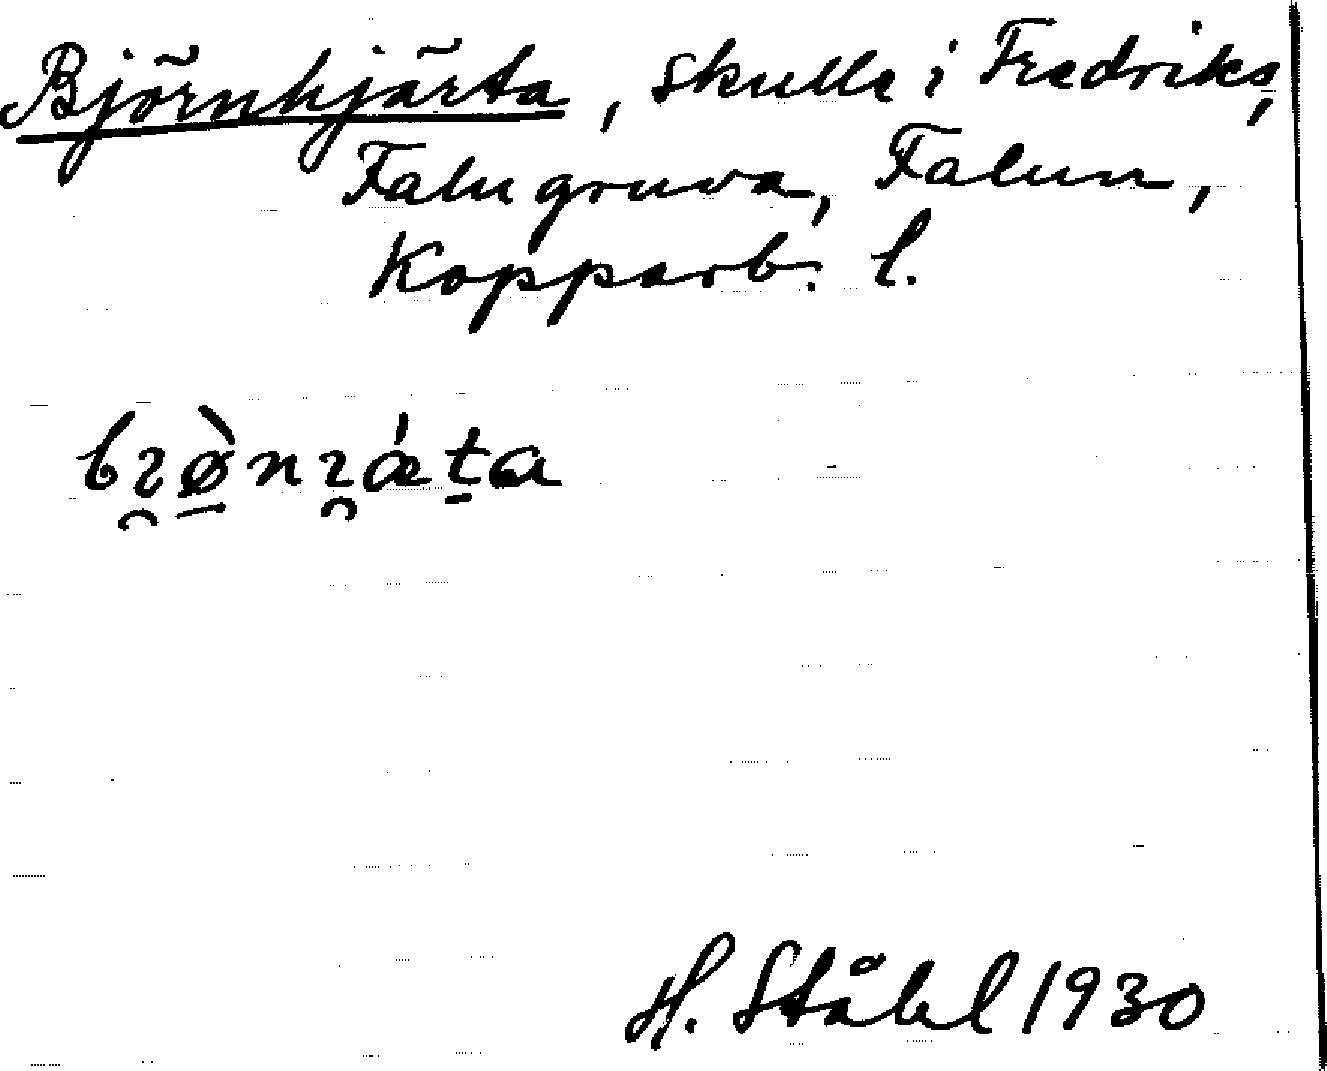 Björnhjärta, skulle i Fredriks,
Falu gruva, Falun,
Kopparb. l.
H. Ståhl 1930